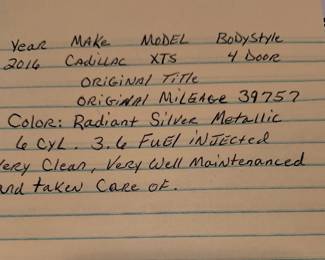 Year Make Model BodyStyle
2016 Cadillac XTS 4 Door
Original Title
Original Mileage 39757
Color: Radiant Silver Metallic
6 Cyl. 3.6 Fuel injected
Very Clean, Very Well Maintenanced
and taken Care of.